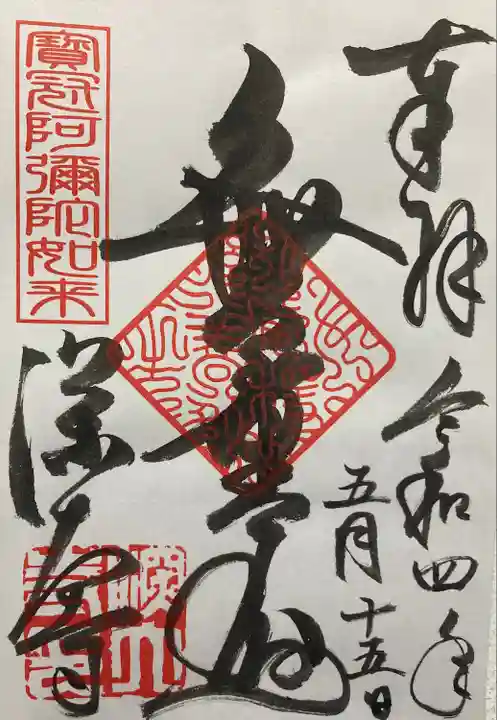 奉拝 令和四年
五月十五日
無量壽
寶冠阿彌陀如来
深大寺